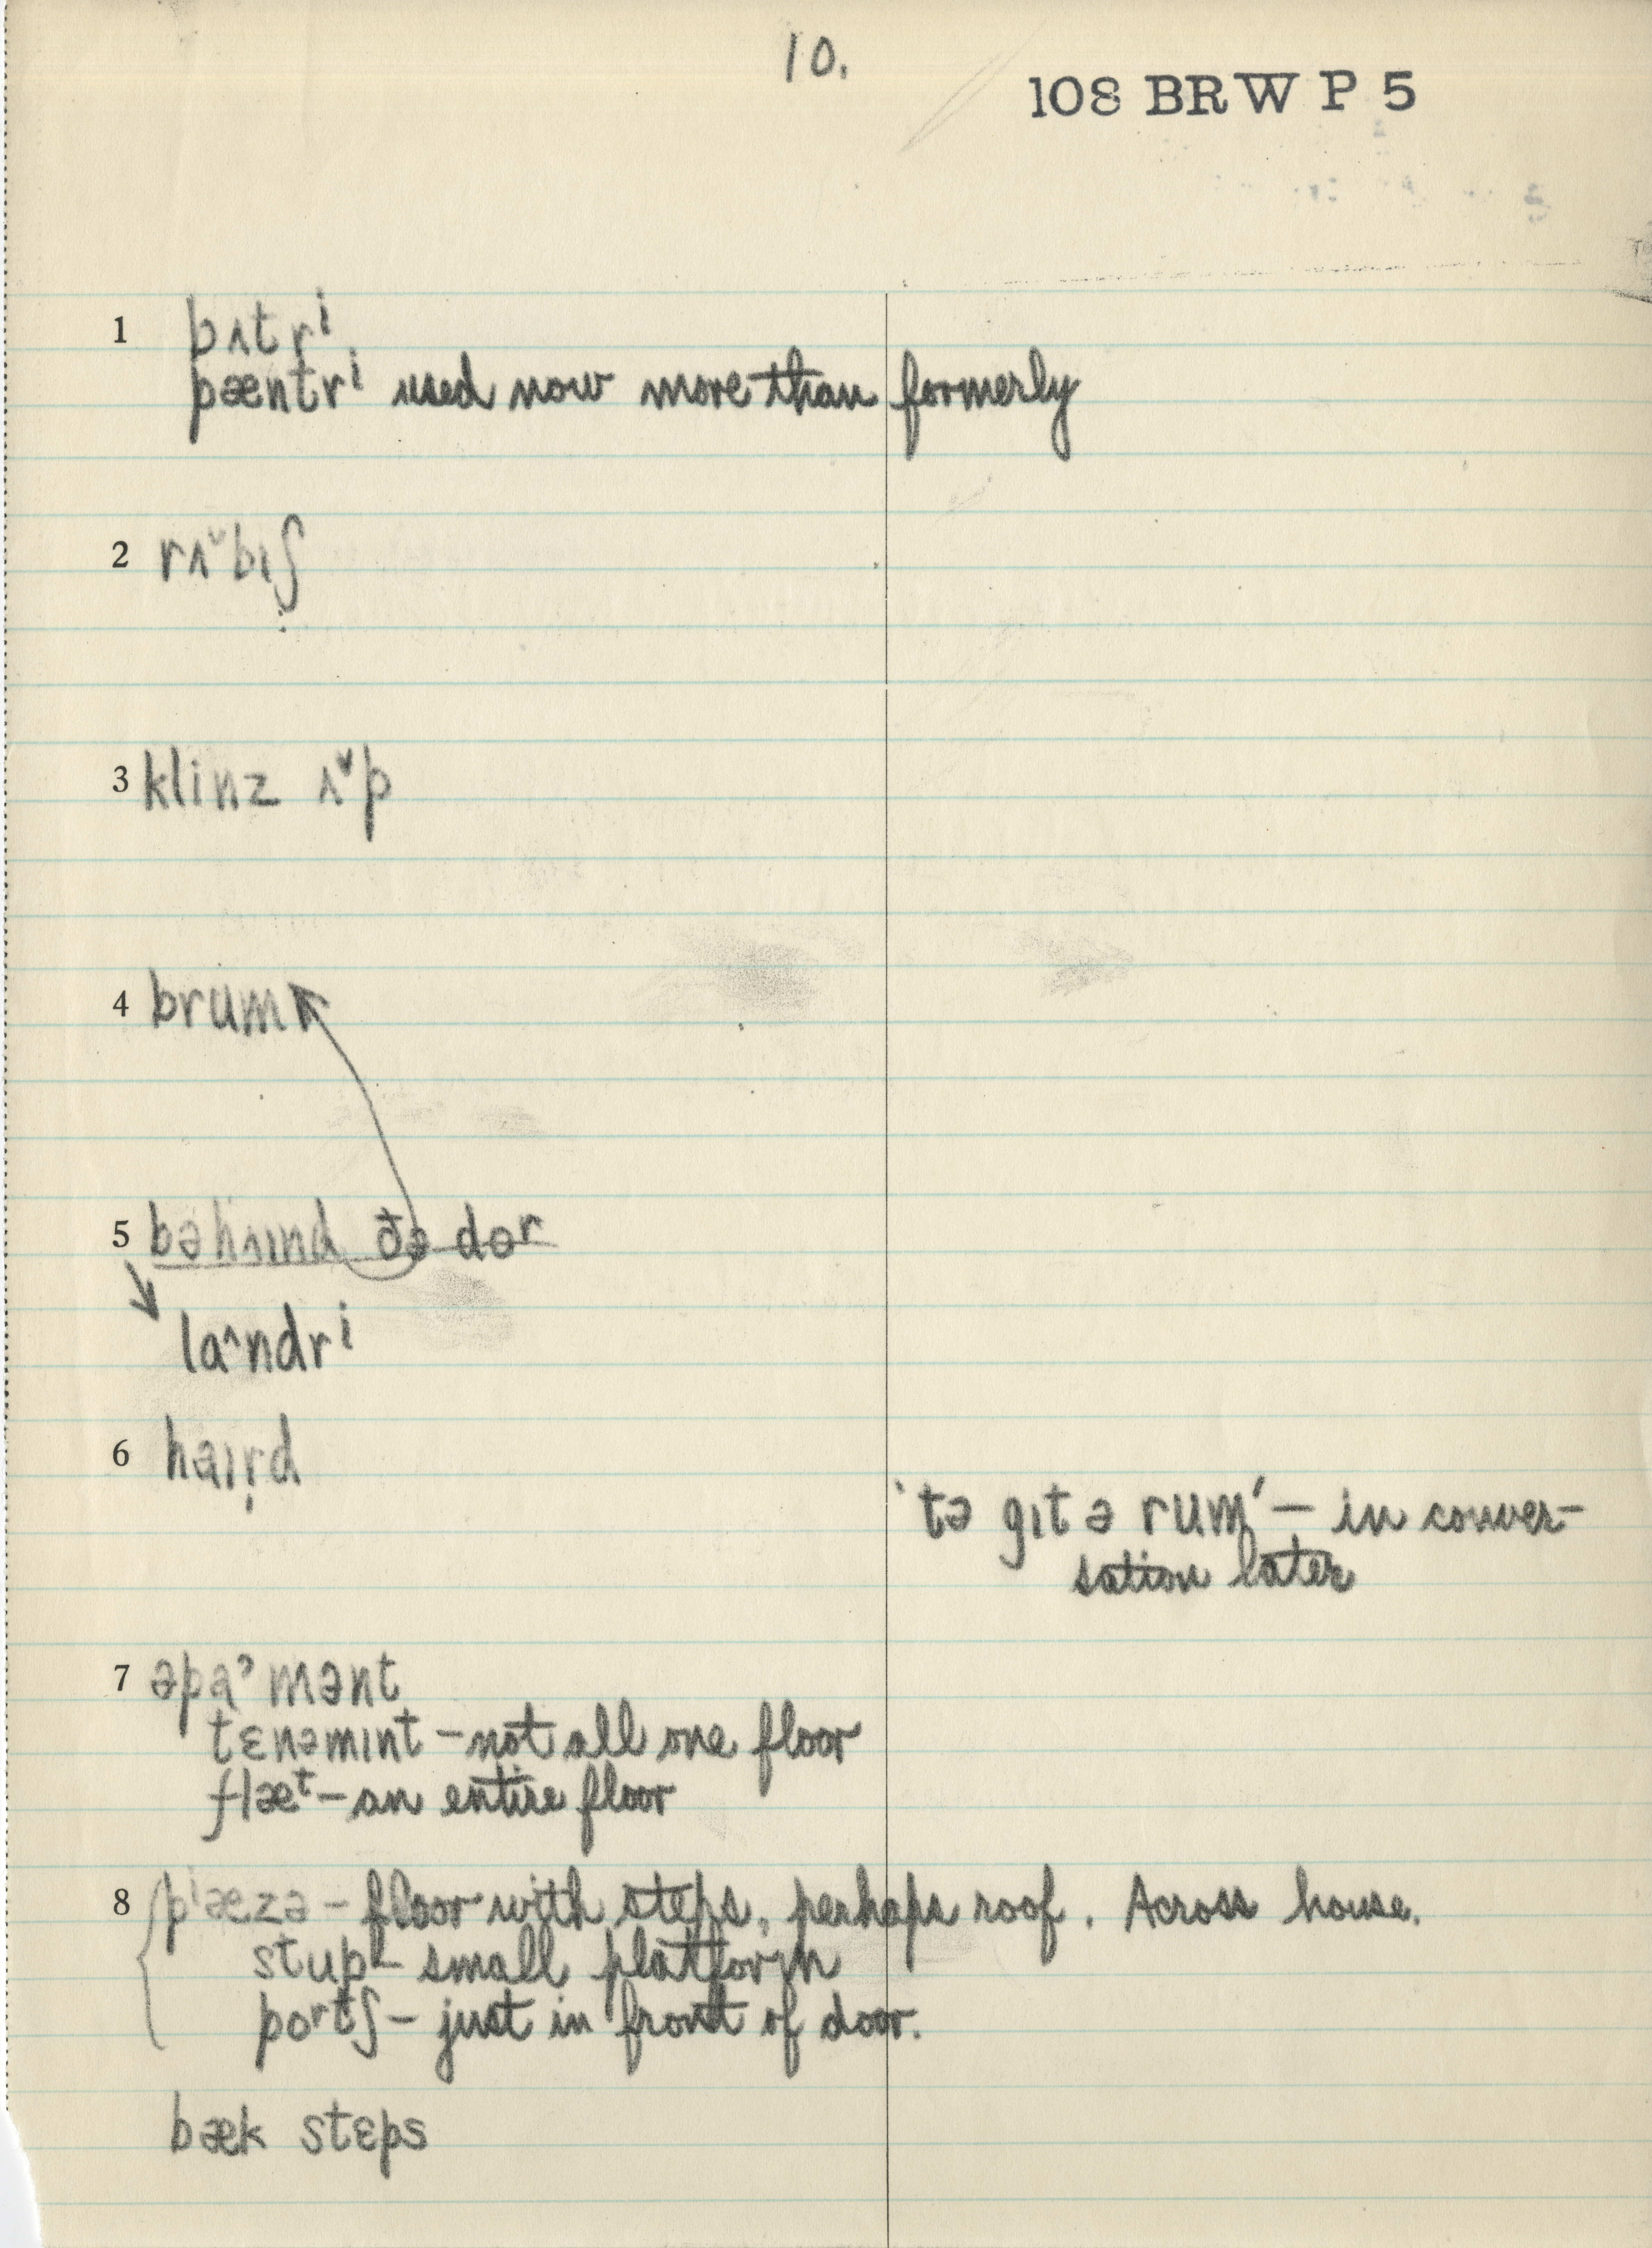 10.
108 BRW P 5
1 bʌtrⁱ
pæntrⁱ used now more than formerly
2 rʌ˅bɪʃ
3 klinz ʌ˅p
4 brum
5 bəhʌɪnd ðə dɔr
la^ndrⁱ
6 haɪr̩d
'tə gɪt ə rum' – in conver-
sation later
7 əpaʾmənt
tɛnəmɪnt – not all one floor
flæᵗ – an entire floor
8 pⁱæzə – floor with steps, perhaps roof. Across house.
stup – small platform
poʳtʃ – just in front of door.
bæk stɛps